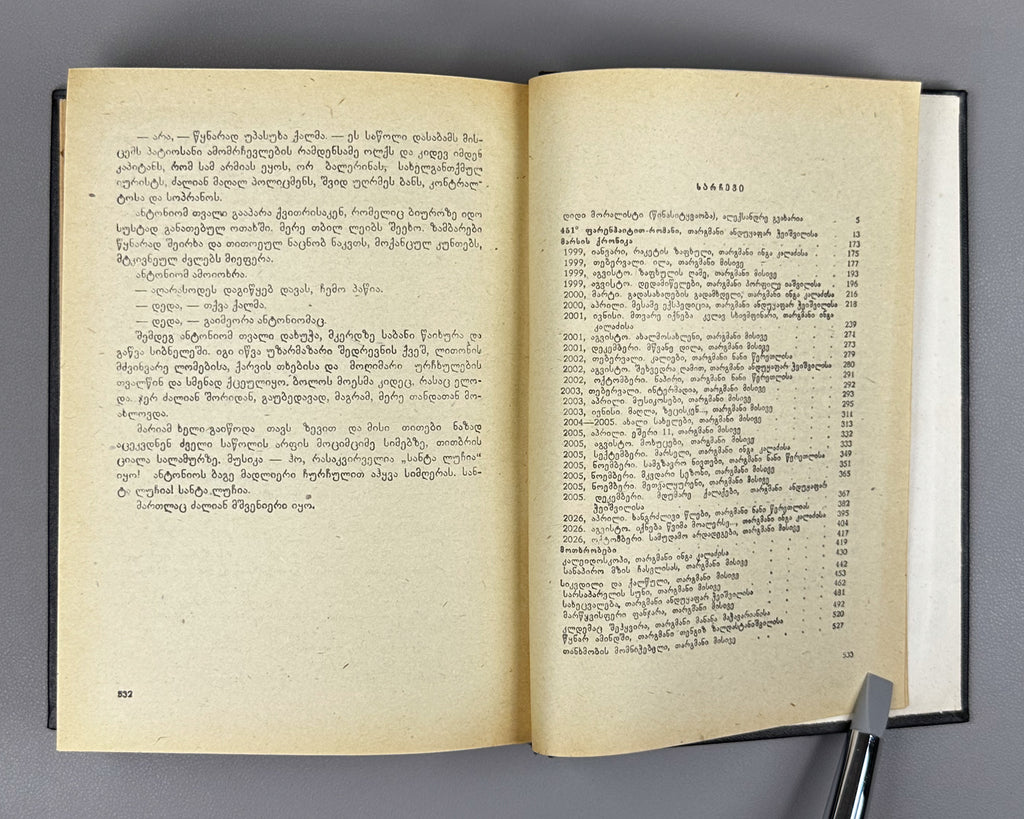 — არა, — წყნარად უპასუხა ქალმა. — ეს საწოლი დასაბამს მის-
ცემს პატიოსანი ამომრჩევლების რამდენსამე ოლქს და კიდევ იმდენ
კაპიტანს, რომ სამ არმიას ეყოს, ორ ბალერინას, სახელგანთქმულ
იურისტს, ძალიან მაღალ პოლიცმენს, შვიდ უღრმეს ბანს, კონტრალ-
ტოსა და სოპრანოს.
ანტონიომ თვალი გააპარა ქვითრისაკენ, რომელიც ბიუროზე იდო
სუსტად განათებულ ოთახში. მერე თბილ ლეიბს შეეხო. ზამბარები
წყნარად შეირხა და თითოეულ ნაცნობ ნაკვთს, მოქანცულ კუნთებს,
მტკივნეულ ძვლებს მიეფერა.
ანტონიომ ამოიოხრა.
— აღარასოდეს დაგიწყებ დავას, ჩემო პაწია.
— დედა, — თქვა ქალმა.
— დედა, — გაიმეორა ანტონიომაც.
შემდეგ ანტონიომ თვალი დახუჭა, მკერდზე საბანი წაიხურა და
გაწვა სიბნელეში. იგი იწვა უზარმაზარი შედრევნის ქვეშ, ლითონის
მძვინვარე ლომებისა, ქარვის თხებისა და მოღიმარი ურჩხულების
თვალწინ და სმენად ქცეულიყო. ბოლოს მოესმა კიდეც, რასაც ელო-
და. ჯერ ძალიან შორიდან, გაუბედავად, მაგრამ, მერე თანდათან მო-
ახლოვდა.
მარიამ ხელი გაიწოდა თავს ზევით და მისი თითები ნაზად
აცეკვდნენ ძველი საწოლის არფის მოციმციმე სიმებზე, თითბრის
ციალა სალამურზე. მუსიკა — ჰო, რასაკვირველია „სანტა ლუჩია“
იყო! ანტონიოს ბაგე მადლიერი ჩურჩულით აჰყვა სიმღერას. სან-
ტა ლუჩია! სანტა ლუჩია.
მართლაც ძალიან მშვენიერი იყო.
532
სარჩევი
დიდი მორალისტი (წინასიტყვაობა), ალექსანდრე გვახარია . 5
451° ფარენჰაიტით-რომანი, თარგმანი ანდუყაფარ ჭეიშვილისა . 13
მარსის ქრონიკა . . . 173
1999, იანვარი, რაკეტის ზაფხული, თარგმანი ინგა კალაძისა . 175
1999, თებერვალი. ილა, თარგმანი მისივე . . 177
1999, აგვისტო. ზაფხულის ღამე, თარგმანი მისივე . . 193
1999, აგვისტო. დედამიწელები, თარგმანი პორფილე იაშვილისა . 196
2000, მარტი. გადასახადების გადამხდელი, თარგმანი ინგა კალაძისა 216
2000, აპრილი. მესამე ექსპედიცია, თარგმანი ანდუყაფარ ჭეიშვილისა 218
2001, ივნისი. მთვარე იქნება კვლავ სხივმფინარი, თარგმანი ინგა
კალაძისა . . . 239
2001, აგვისტო. ახალმოსახლენი, თარგმანი მისივე . . 271
2001, დეკემბერი. მწვანე დილა, თარგმანი მისივე . . 273
2002, თებერვალი. კალიები, თარგმანი ნანი წერეთლისა . . 279
2002, აგვისტო. შეხვედრა ღამით, თარგმანი ანდუყაფარ ჭეიშვილისა 280
2002, ოქტომბერი. ნაპირი, თარგმანი ნანი წერეთლისა . . 291
2003, თებერვალი. ინტერმედია, თარგმანი მისივე . . 292
2003, აპრილი. მუსიკოსები, თარგმანი მისივე . . 293
2003, ივნისი. მაღლა, ზეცისკენ..., თარგმანი მისივე . . 295
2004—2005. ახალი სახელები, თარგმანი მისივე . . 311
2005, აპრილი. ეშერი 11, თარგმანი მისივე . . 313
2005, აგვისტო. მოხუცები, თარგმანი მისივე . . 332
2005, სექტემბერი. მარსელი, თარგმანი ინგა კალაძისა . . 333
2005, ნოემბერი. სამგზავრო ნივთები, თარგმანი ნანი წერეთლისა . 349
2005, ნოემბერი. მკვდარი სეზონი, თარგმანი მისივე . . 351
2005, ნოემბერი. მეთვალყურენი, თარგმანი მისივე . . 365
2005. დეკემბერი. მდუმარე ქალაქები, თარგმანი ანდუყაფარ
ჭეიშვილისა . . . 367
2026, აპრილი. ხანგრძლივი წლები, თარგმანი ნანი წერეთლის . 382
2026. აგვისტო. იქნება წვიმა მოალერსე..., თარგმანი ინგა კალაძისა . 395
2026, ოქტომბერი. სამუდამო არდადეგები, თარგმანი მისივე . 404
მოთხრობები . . . 417
კალეიდოსკოპი, თარგმანი ინგა კალაძისა . . 419
სანაპირო მზის ჩასვლისას, თარგმანი მისივე . . 430
სიკვდილი და ქალწული, თარგმანი მისივე . . 442
სარსაპარელის სუნი, თარგმანი მისივე . . 453
სახეცვალება, თარგმანი ანდუყაფარ ჭეიშვილისა . . 462
მარწყვისფერი ფანჯარა, თარგმანი მისივე . . 481
კლდემაც შეჰყვირა, თარგმანი მანანა მაჭავარიანისა . . 492
წყნარ ამინდში, თარგმანი თენგიზ ზალდასტანიშვილისა . . 520
თანხმობის მომნიჭებელი, თარგმანი მისივე . . 527
533